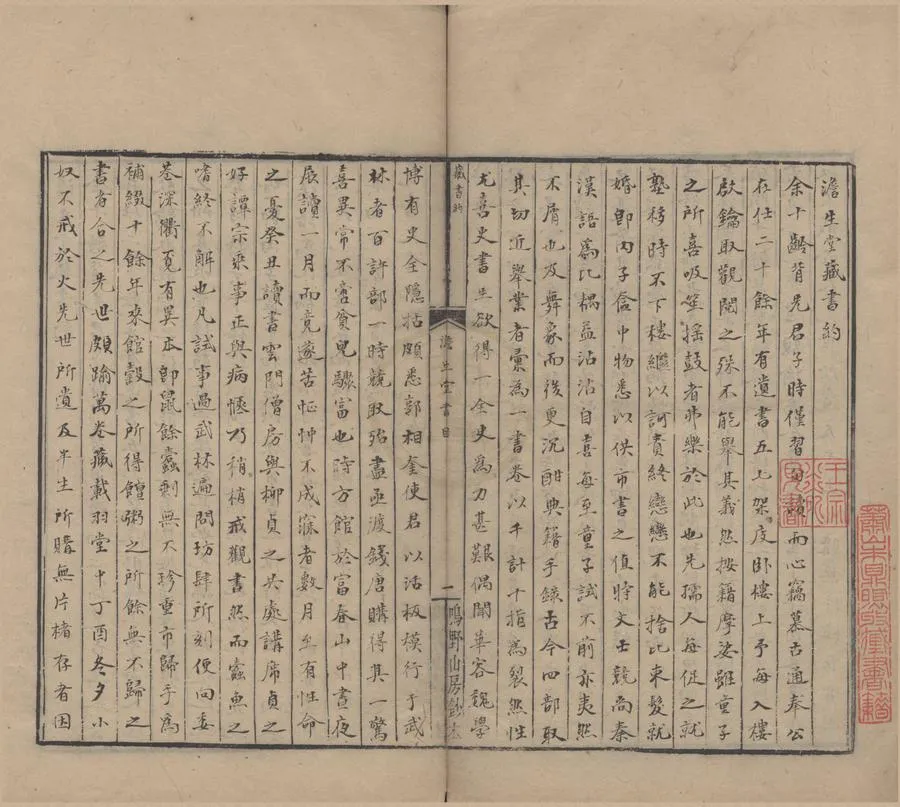 澹生堂藏書約
余十齡背先君子時僅習句讀而心竊慕古通奉公
在仕二十餘年有遺書五七架庋臥樓上予每入樓
啟鑰取觀閱之殊不能舉其義然按籍摩娑雖童子
之所喜吸笙搖鼓者弗樂於此也先孺人每促之就
塾移時不下樓繼以訶責終戀戀不能捨比束髮就
婚即內子奩中物悉以供市書之值時文士競尚秦
漢語為比偶益沾沾自喜每至童子試不前亦夷然
不屑也及舞象而後更沉酣典籍手錄古今四部取
其切近舉業者彙為一書卷以千計十指為裂然性
尤喜史書生欲得一全史為力甚艱偶聞華容魏學
藏書約
澹生堂書目
二
鳴野山房鈔本
博有史全隱括頗悉郭相奎使君以活板模行于武
林者百許部一時競取殆盡亟渡錢唐購得其一驚
喜異常不啻貧兒驟富也時方館於富春山中晝夜
展讀一月而竟遂苦怔忡不成寐者數月至有性命
之憂癸丑讀書雲門僧房與柳貞之共處講席貞之
好譚宗乘事正與病愜乃稍稍戒觀書然而蠹魚之
嗜終不解也凡試事過武林遍問坊肆所刻便向委
巷深衢覓有異本即鼠餘蠹剩無不珍重市歸手為
補綴十餘年來館穀之所得饘粥之所餘無不歸之
書者合之先世頗踰萬卷藏載羽堂中丁酉冬夕小
奴不戒於火先世所遺及半生所購無片楮存者因